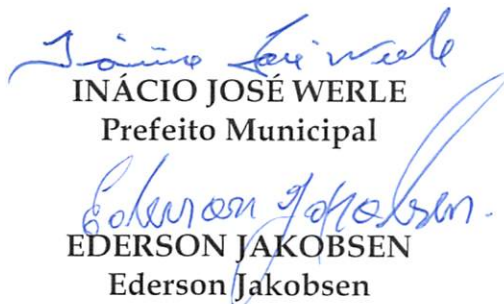 Inácio José Werle
INÁCIO JOSÉ WERLE
Prefeito Municipal
Ederson Jakobsen.
EDERSON JAKOBSEN
Ederson Jakobsen